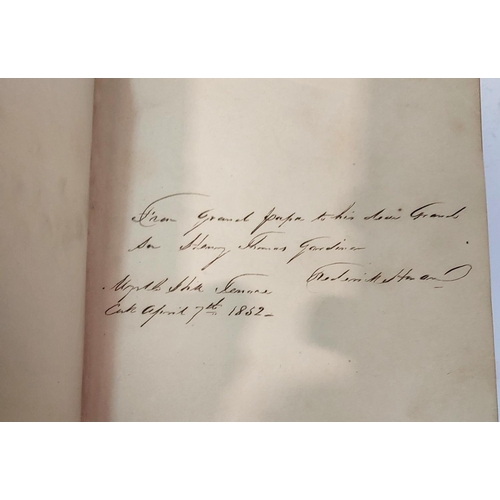 From Grand papa to his dear Grand
son Henry Thomas Gardiner
Frederick
Myrtle Hill Terrace
Cork April 7th 1852